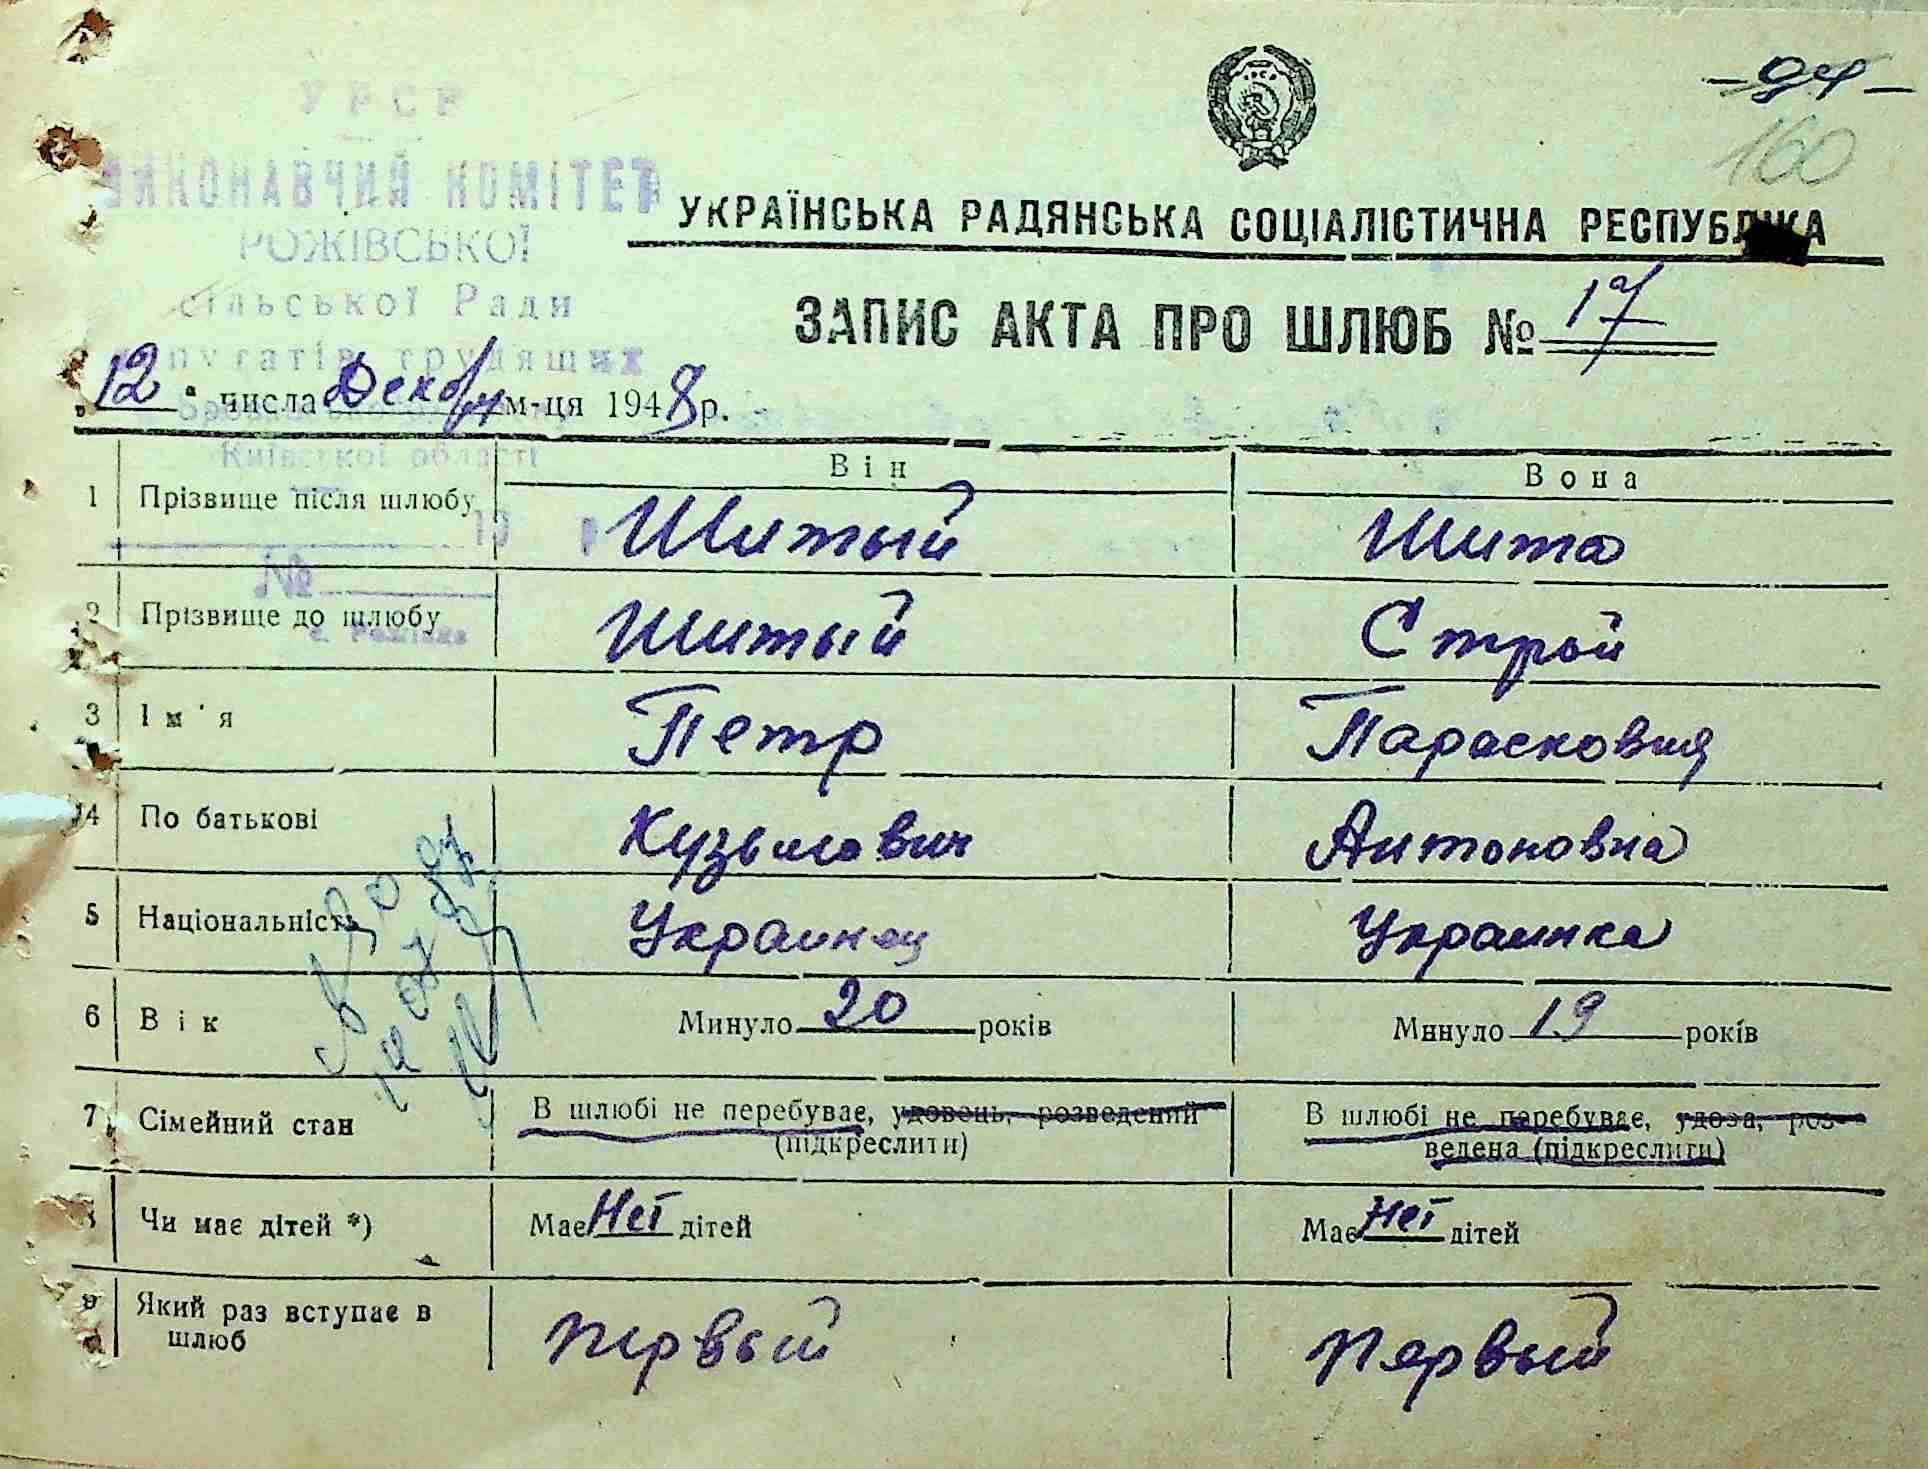 УРСР
ВИКОНАВЧИЙ КОМІТЕТ
РОЖІВСЬКОЇ
сільської Ради
депутатів трудящих
Київської області
19 р
№
160
УКРАЇНСЬКА РАДЯНСЬКА СОЦІАЛІСТИЧНА РЕСПУБЛІКА
ЗАПИС АКТА ПРО ШЛЮБ № 17
„12" числа Декабр м-ця 1948 р.
Він Вона
1 Прізвище після шлюбу Шитый Шита
2 Прізвище до шлюбу Шитый Строй
3 Ім'я Петр Парасковия
4 По батькові Кузьмович Антоновна
5 Національність Украинец Украинка
6 Вік Минуло 20 років Минуло 19 років
7 Сімейний стан В шлюбі не перебуває, удовець, розведений (підкреслити) В шлюбі не перебуває, удова, розведена (підкреслити)
8 Чи має дітей *) Має Нет дітей Має Нет дітей
9 Який раз вступає в шлюб первый первый